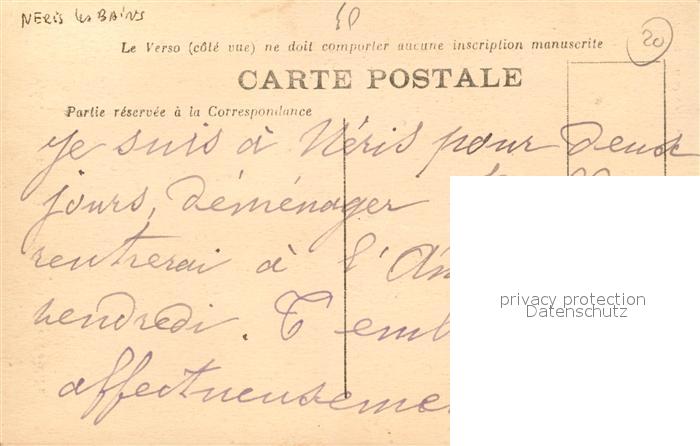 NERIS les BAINS
20
Le Verso (côté vue) ne doit comporter aucune inscription manuscrite
CARTE POSTALE
Partie réservée à la Correspondance
Je suis à Néris pour deux
jours, déménager
rentrerai à l'
vendredi. T
affectueuseme
privacy protection
Datenschutz